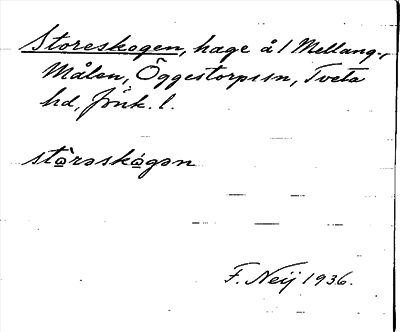 Storeskogen, hage å 1 Mellang.,
Målen, Öggestorps sn, Tveta
hd, Jönk. l.
stòrəskógən
F. Neij 1936.